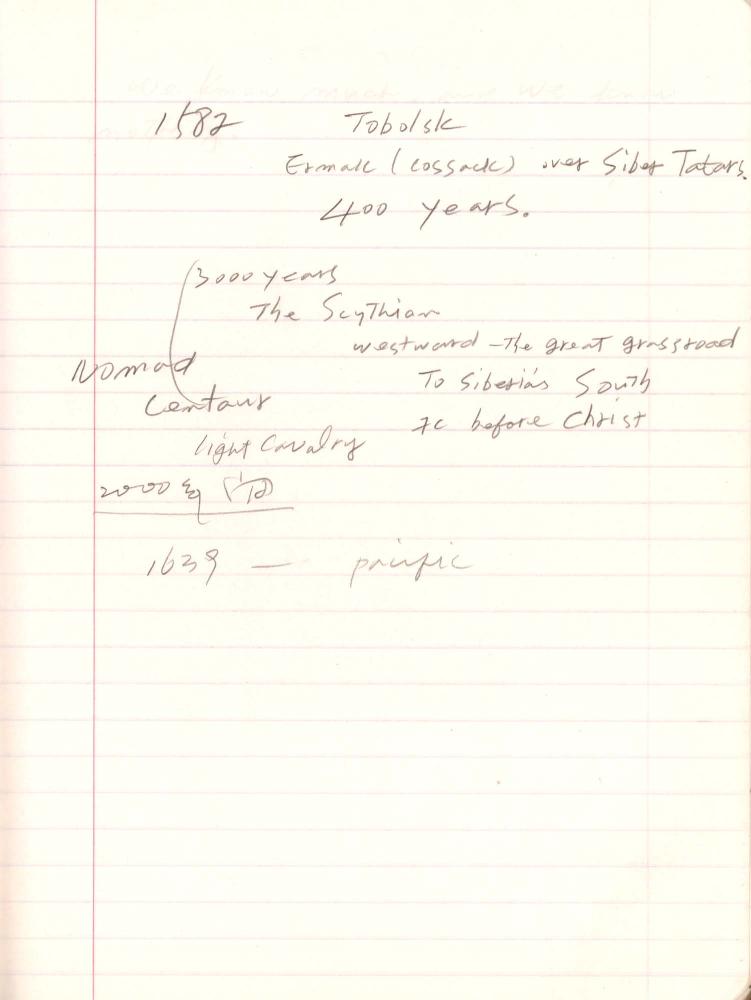 1582 Tobolsk
Ermak (cossack) over Siber Tatars.
400 years.
3000 years
The Scythian
westward - The great grassroad
Nomad
To Siberia's South
Centaur
7c before Christ
light Cavalry
2000
1639 — pacific